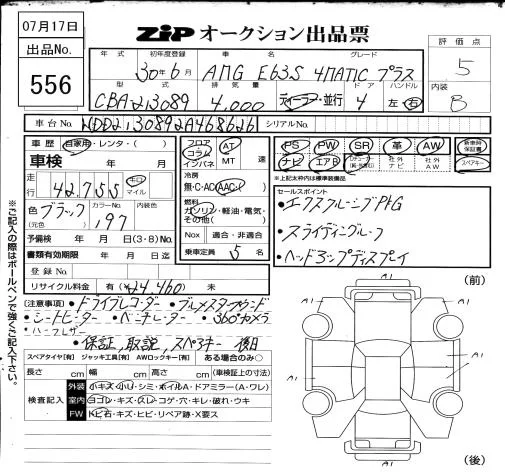 07月17日
出品No.
556
ZiP オークション出品票
評価点
5
内装
B
年式 初年度登録 車名 グレード
30年6月 AMG E63S 4MATIC プラス
型式 排気量 ドア ハンドル
CBA213089 4,000 ディーラー・並行 4 左・右
車台No. WDD2130892A468626 シリアルNo.
車歴 自家用・レンタ・( )
車検 年 月
走行 42,755 キロ マイル
色(元色) ブラック カラーNo. 197 内装色
予備検 年 月 日(3・8)No.
書類有効期限 年 月 日迄
登録No.
リサイクル料金 有(¥24,460) 未
フロア コラム インパネ AT MT 速
冷房
無・C・AC・AAC・( )
燃料
ガソリン・軽油・電気・その他( )
Nox 適合・非適合
乗車定員 5 名
PS PW SR 革 AW 新車時保証書
ナビ エアB 社外ナビ 社外AW スペアキー
※上記太枠内は標準装備品
セールスポイント
・エクスクルーシブPKG
・スライディングルーフ
・ヘッドアップディスプレイ
(注意事項) ・ドライブレコーダー ・ブルメスターサウンド
・シートヒーター ・ベンチレーター ・360°カメラ
・パーフレザー
・保証,取説,スペアキー 後日
スペアタイヤ[有] ジャッキ工具[有] AWロックキー[有] ある場合のみ○
長さ cm 幅 cm 高さ cm (車検証上の寸法)
検査記入 外装 小キズ・小U・シミ・ボイルA・ドアミラー(A・ワレ)
室内 ヨゴレ・キズ・スレ・コゲ・穴・キレ・破れ・ウキ
FW トビ石・キズ・ヒビ・リペア跡・X要ス
※ご記入の際はボールペンで強くご記入下さい。
(前)
A1 A1
A1 A1
A1
(後)